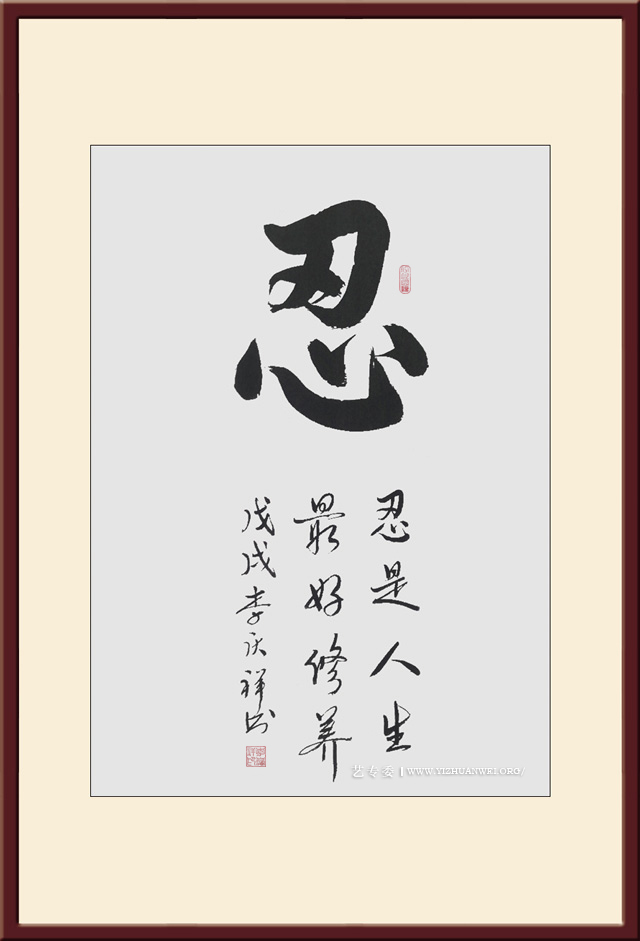 忍
忍是人生
最好修养
戊戌李庆祥书
艺专委 | WWW.YIZHUANWEI.ORG/